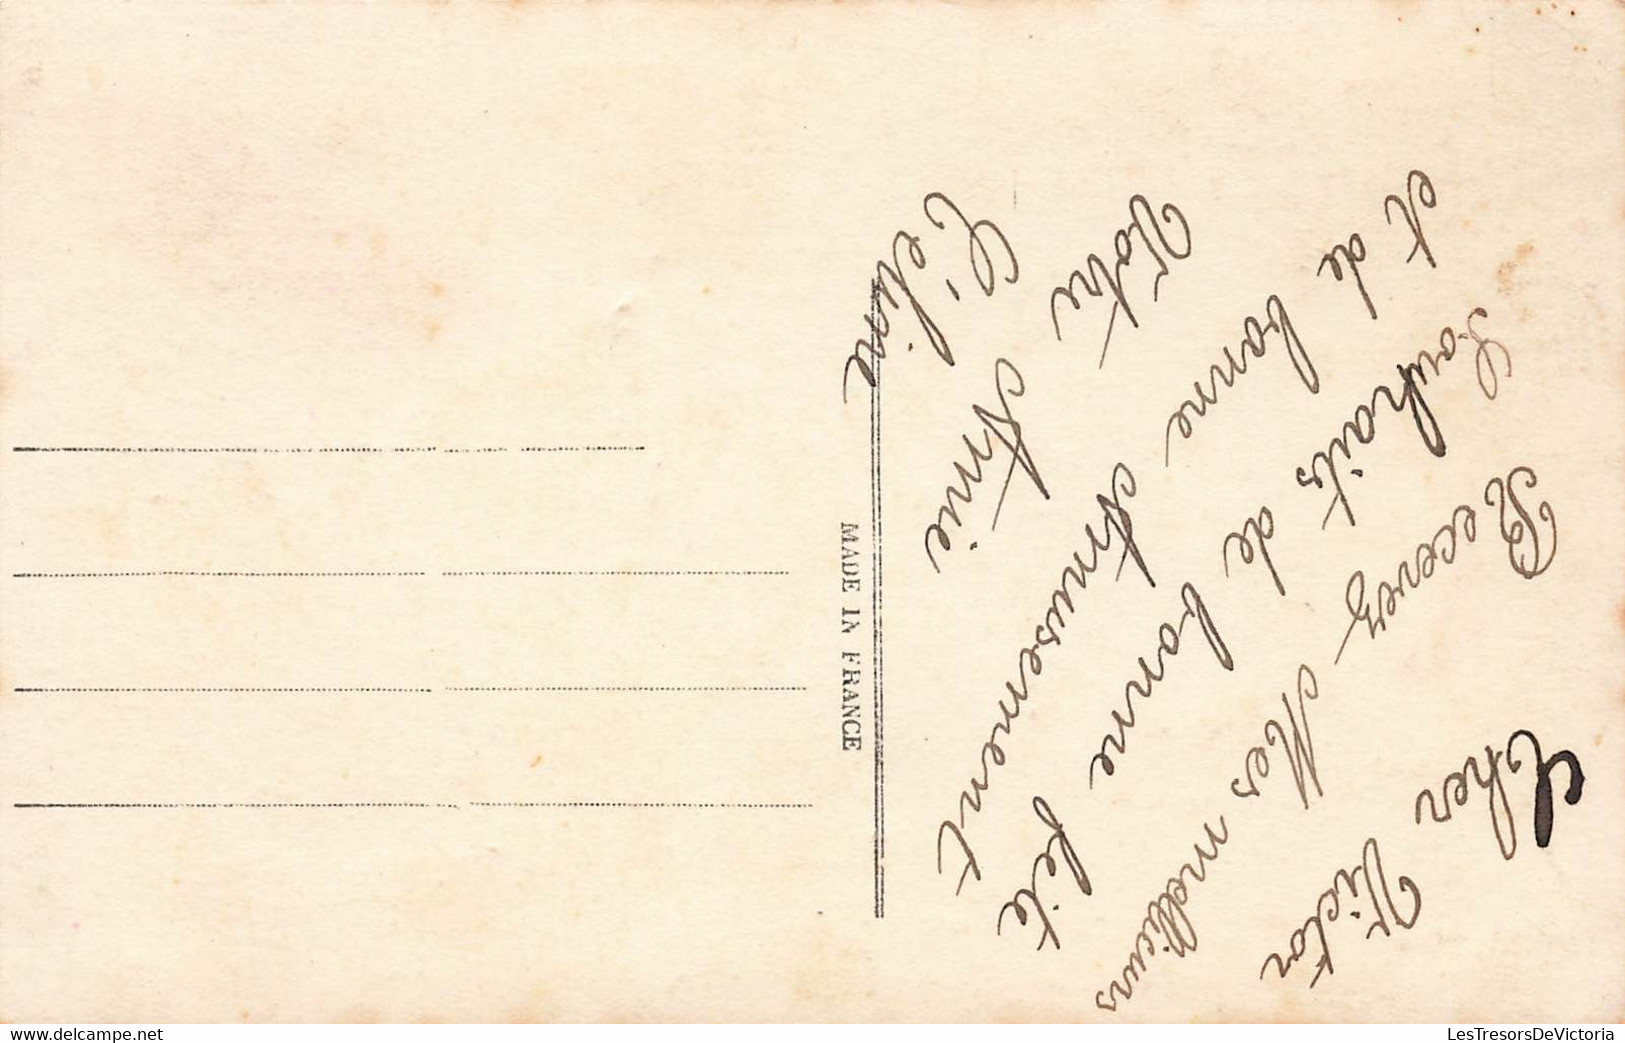 Cher Victor
Recevez Mes meillieurs
Souhaits de bonne fête
et de bonne Amusement
Votre Amie
Céline
MADE IN FRANCE
delcampe.net
LesTresorsDeVictoria